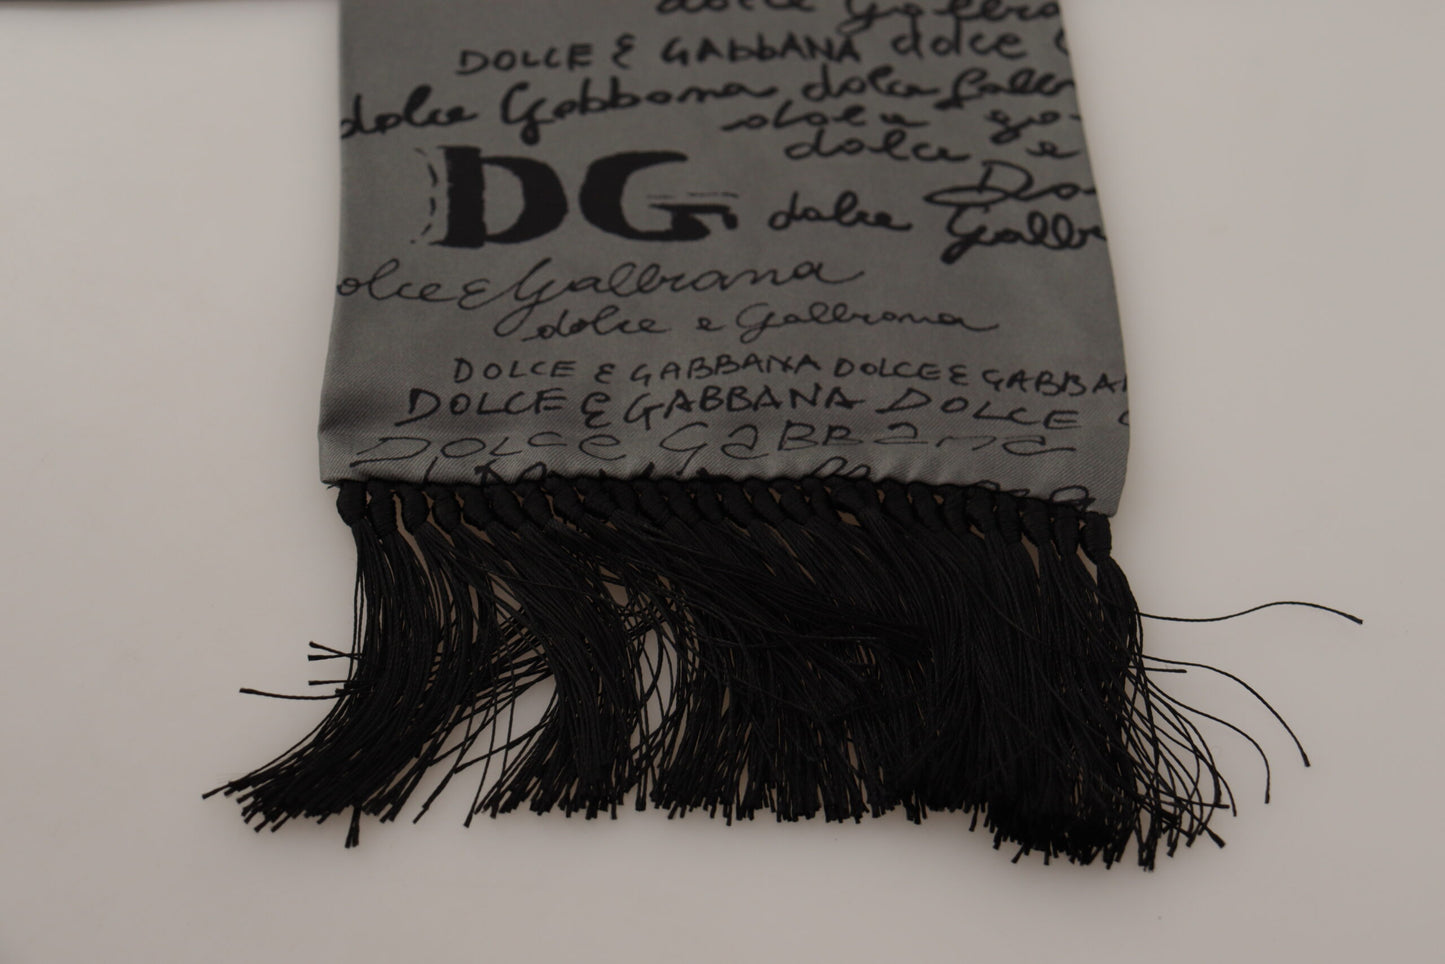 dolce Gabbana
DOLCE & GABBANA dolce
dolce Gabbana dolce Gabb
dolce ga
dolce e
DG dolce Do
Gabb
dolce & Gabbana
dolce e Gabbana
DOLCE & GABBANA DOLCE & GABBA
DOLCE & GABBANA DOLCE
DOLCE GaBBana